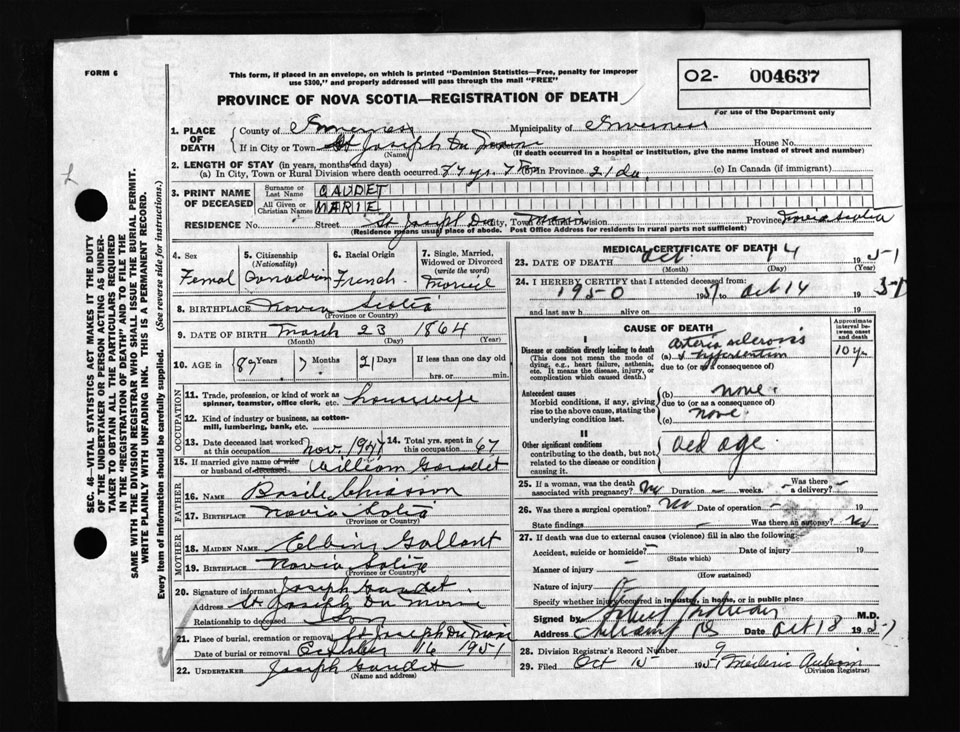 FORM 6
This form, if placed in an envelope, on which is printed "Dominion Statistics—Free, penalty for improper
use $300," and properly addressed will pass through the mail "FREE"
PROVINCE OF NOVA SCOTIA—REGISTRATION OF DEATH
O2- 004637
For use of the Department only
1. PLACE OF DEATH
County of Inverness Municipality of Inverness
If in City or Town St Joseph Du Moine House No.
(Name) (If death occurred in a hospital or institution, give the name instead of street and number)
2. LENGTH OF STAY (in years, months and days)
(a) In City, Town or Rural Division where death occurred 87 yrs. 7 (b) In Province 21 da. (c) In Canada (if immigrant)
3. PRINT NAME OF DECEASED
Surname or Last Name GAUDET
All Given or Christian Names MARIE
RESIDENCE No. Street St Joseph Du Moine City, Town or Rural Division Province Nova Scotia
(Residence means usual place of abode. Post Office Address for residents in rural parts not sufficient)
4. Sex 5. Citizenship (Nationality) 6. Racial Origin 7. Single, Married, Widowed or Divorced (write the word)
Femal Canadian French Married
8. BIRTHPLACE Nova Scotia
(Province or Country)
9. DATE OF BIRTH March 23 1864
(Month) (Day) (Year)
10. AGE in 87 Years 7 Months 21 Days If less than one day old
hrs. or min.
OCCUPATION
11. Trade, profession, or kind of work as spinner, teamster, office clerk, etc. housewife
12. Kind of industry or business, as cotton-mill, lumbering, bank, etc.
13. Date deceased last worked at this occupation Nov. 1947 14. Total yrs. spent in this occupation 67
15. If married give name of wife or husband of deceased William Gaudet
FATHER
16. NAME Basile Chiasson
17. BIRTHPLACE Novia Sotia
(Province or Country)
MOTHER
18. MAIDEN NAME Gallant
19. BIRTHPLACE Novia Sotia
(Province or Country)
20. Signature of informant Joseph Gaudet
Address St Joseph Du Moine
Relationship to deceased Son
21. Place of burial, cremation or removal St Joseph Du Moine
Date of burial or removal October 16 1951
22. UNDERTAKER Joseph Gaudet
(Name and address)
MEDICAL CERTIFICATE OF DEATH
23. DATE OF DEATH Oct. 14 1951
(Month) (Day) (Year)
24. I HEREBY CERTIFY that I attended deceased from:
1950 195 to Oct 14 1951
and last saw h alive on 19
CAUSE OF DEATH
Approximate interval between onset and death
I
Disease or condition directly leading to death
(This does not mean the mode of dying, e.g., heart failure, asthenia, etc. It means the disease, injury, or complication which caused death.)
(a) Arteria sclerosis & hypertention 10 yr
due to (or as a consequence of)
Antecedent causes
Morbid conditions, if any, giving rise to the above cause, stating the underlying condition last.
(b) none.
due to (or as a consequence of)
(c) none
II
Other significant conditions
contributing to the death, but not related to the disease or condition causing it.
Old age
25. If a woman, was the death associated with pregnancy? No Duration — weeks. Was there a delivery? —
26. Was there a surgical operation? No Date of operation — 19
State findings — Was there an autopsy? No
27. If death was due to external causes (violence) fill in also the following:
Accident, suicide or homicide? — Date of injury 19
(State which)
Manner of injury —
(How sustained)
Nature of injury
Specify whether injury occurred in industry, in home, or in public place
Signed by M.D.
Address Date Oct 18 1951
28. Division Registrar's Record Number 9
29. Filed Oct 15 1951 Aucoin
(Division Registrar)
SEC. 46—VITAL STATISTICS ACT MAKES IT THE DUTY
OF THE UNDERTAKER OR PERSON ACTING AS UNDER-
TAKER TO OBTAIN ALL THE PARTICULARS REQUIRED
IN THE "REGISTRATION OF DEATH" AND TO FILE THE
SAME WITH THE DIVISION REGISTRAR WHO SHALL ISSUE THE BURIAL PERMIT.
WRITE PLAINLY WITH UNFADING INK. THIS IS A PERMANENT RECORD.
Every item of information should be carefully supplied. (See reverse side for instructions.)